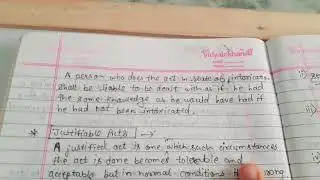 Vidyarthandi
A person who does the act in state of intoxican
shall be liable to be dealt with as if he had
the same knowledge as he would have had if
he had not been intoxicated.
* Justifiable Acts →
A justified act is one which such circumstances
the act is done becomes tolerable and
acceptable but in normal conditions the wrong